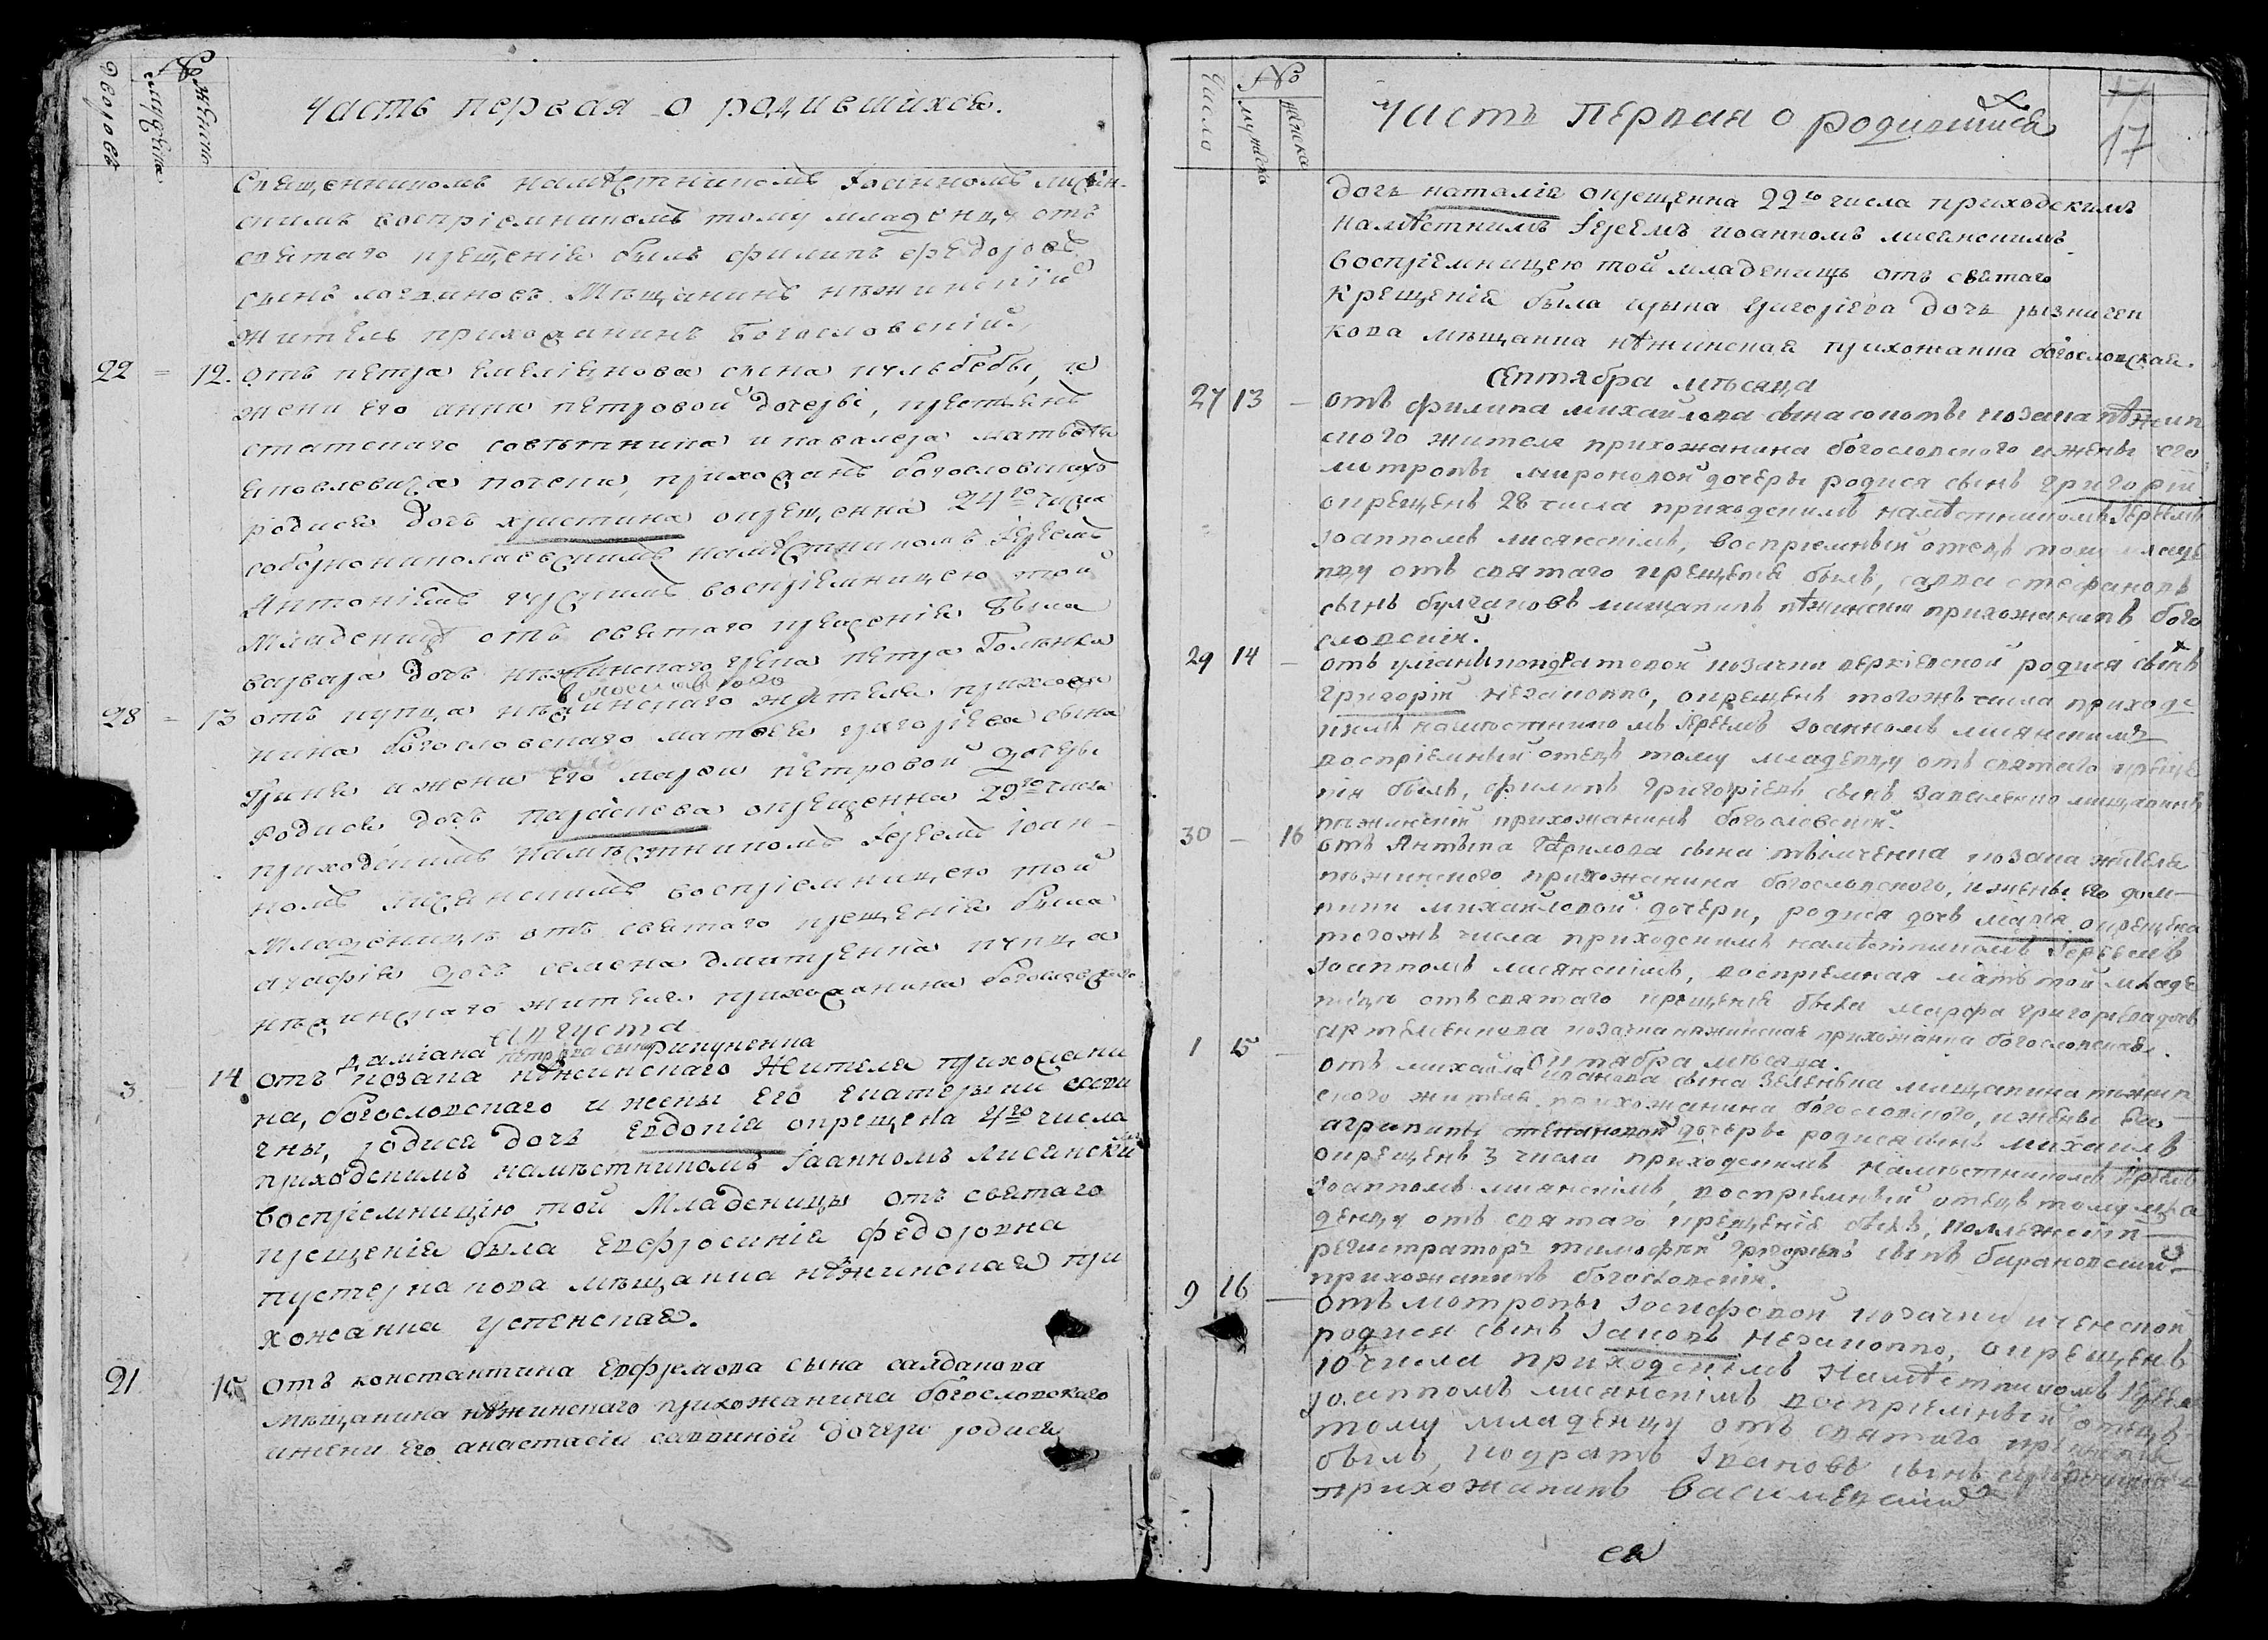 №
мужеска
женска
Часть первая о родившихся.
Священникомъ намѣстникомъ Іоанномъ лисян-
скимъ воспріемникомъ тому младенцу отъ
святаго крещенія былъ филипъ федоровъ
сынъ Мѣщанинъ нѣжинскій
житель прихожанинъ Богословскій,
22 = 12. отъ петра емеліянова сына кульбебы, и
жени его анни петровой дочеры, крестянъ
статского совѣтника и кавалера матвѣя
яковлевича почеки, прихожанъ богословскихъ
родися дочь христина окрещенна 24го числа
соборнониколаевскимъ намѣстникомъ Іереемъ
Антоніемъ воспріемницею той
Младеницѣ отъ святаго крещенія была
варвара дочь нѣжинского грека петра Голынка
28 = 13 отъ купца нѣжинского жителя прихожа
нина богословского матвея григоріева сына
Грина и жени его марфи петровой дочеры
родися дочь параскева окрещенна 29го числа
приходскимъ намѣстникомъ Іереемъ Іоан-
номъ лисянскимъ воспріемницею той
Младеницѣ отъ святаго крещенія была
агафія дочь семена дмитренка купца
нѣжинского жителя прихожанина богословского
августа
даміана петрова сына Рипуненка
3 14 отъ козака нѣжинскаго Жителя прихожани
на, богословскаго и жены его екатерыни савви
чны, родися дочь Евдокія окрещена 4го числа
приходскимъ намѣстникомъ Іоанномъ Лисянским
воспріемницію той Младеницы отъ святаго
крещенія была Евфросинія Федоровна
пустернакова мѣщанка нѣжинская при
хожанка успенская.
21 15 Отъ константина Евфремова сына салданова
мѣщанина нѣжинскаго прихожанина богословскаго
ижени его анастасіи саввиной дочери родися
Число
№
мужеска
женска
Часть Первая о родившихся
17
17
дочь наталія окрещенна 22го числа приходскимъ
намѣстнимъ Іереемъ иоанномъ лисянскимъ
воспріемницею той младеницѣ отъ святаго
Крещенія была ирына григоріева дочь резничен
кова мѣщанка нѣжинская прихожанка богословская.
Септября мѣсяца
27 13 — отъ филипа михайлова сына сопоты козака нѣжин
ского жителя прихожанина богословского и жены его
мотроны мироновой дочеры родися сынъ григорій
окрещенъ 28 числа приходскимъ намѣстникомъ Іереемъ
Іоанномъ лисянскімъ, воспріемный отецъ тому младе
нцу отъ святаго крещенія былъ, савва стефановъ
сынъ булгаковъ мищанинъ нѣжинскій прихожанинъ бого
словскій.
29 14 — отъ уліаны козачки веркіевской родися сынъ
григорій незаконно, окрещенъ тогожъ числа приходс
кимъ намѣстникомъ Іереемъ Іоанномъ лисянскимъ
воспріемный отецъ тому младенцу отъ святаго креще
нія былъ, филипъ григоріевъ сынъ василенко мищанинъ
нѣжинскій прихожанинъ богословскій.
30 — 16 отъ Антыпа Гаврилова сына козака жителя
нѣжинского прихожанина богословского, и жены его дом-
нини михайловой дочери, родися дочь марія окрещена
тогожъ числа приходскимъ намѣстникомъ Іереемъ
Іоанномъ лисянскімъ, воспріемная мать той младе
ницы отъ святаго крещенія была марфа григоріева дочь
артеменкова козачка нѣжинская прихожанка богословская.
Октября мѣсяца.
1 15 — отъ михайла иванова сына Зеленька мищанина нѣжин
ского жителя, прихожанина богословского, и жены его
агрипины степановой дочеры родися сынъ михаилъ
окрещенъ 3 числа приходскимъ намѣстникомъ Іереемъ
Іоанномъ лисянскімъ, воспріемный отецъ тому мла
денцу отъ святаго крещенія былъ, коллежскій
регистраторъ тимофей григорьевъ сынъ барановский
прихожанинъ богословскій.
9 16 — отъ мотроны Іосифовой козачки иченской
родися сынъ Іаковъ незаконно, окрещенъ
10 числа приходскімъ Намѣстникомъ Іереем
Іоанномъ лисянскімъ воспріемный отецъ
тому младенцу отъ святаго крещенія
былъ, кодратъ Івановъ сынъ
прихожанинъ Василевский
ся